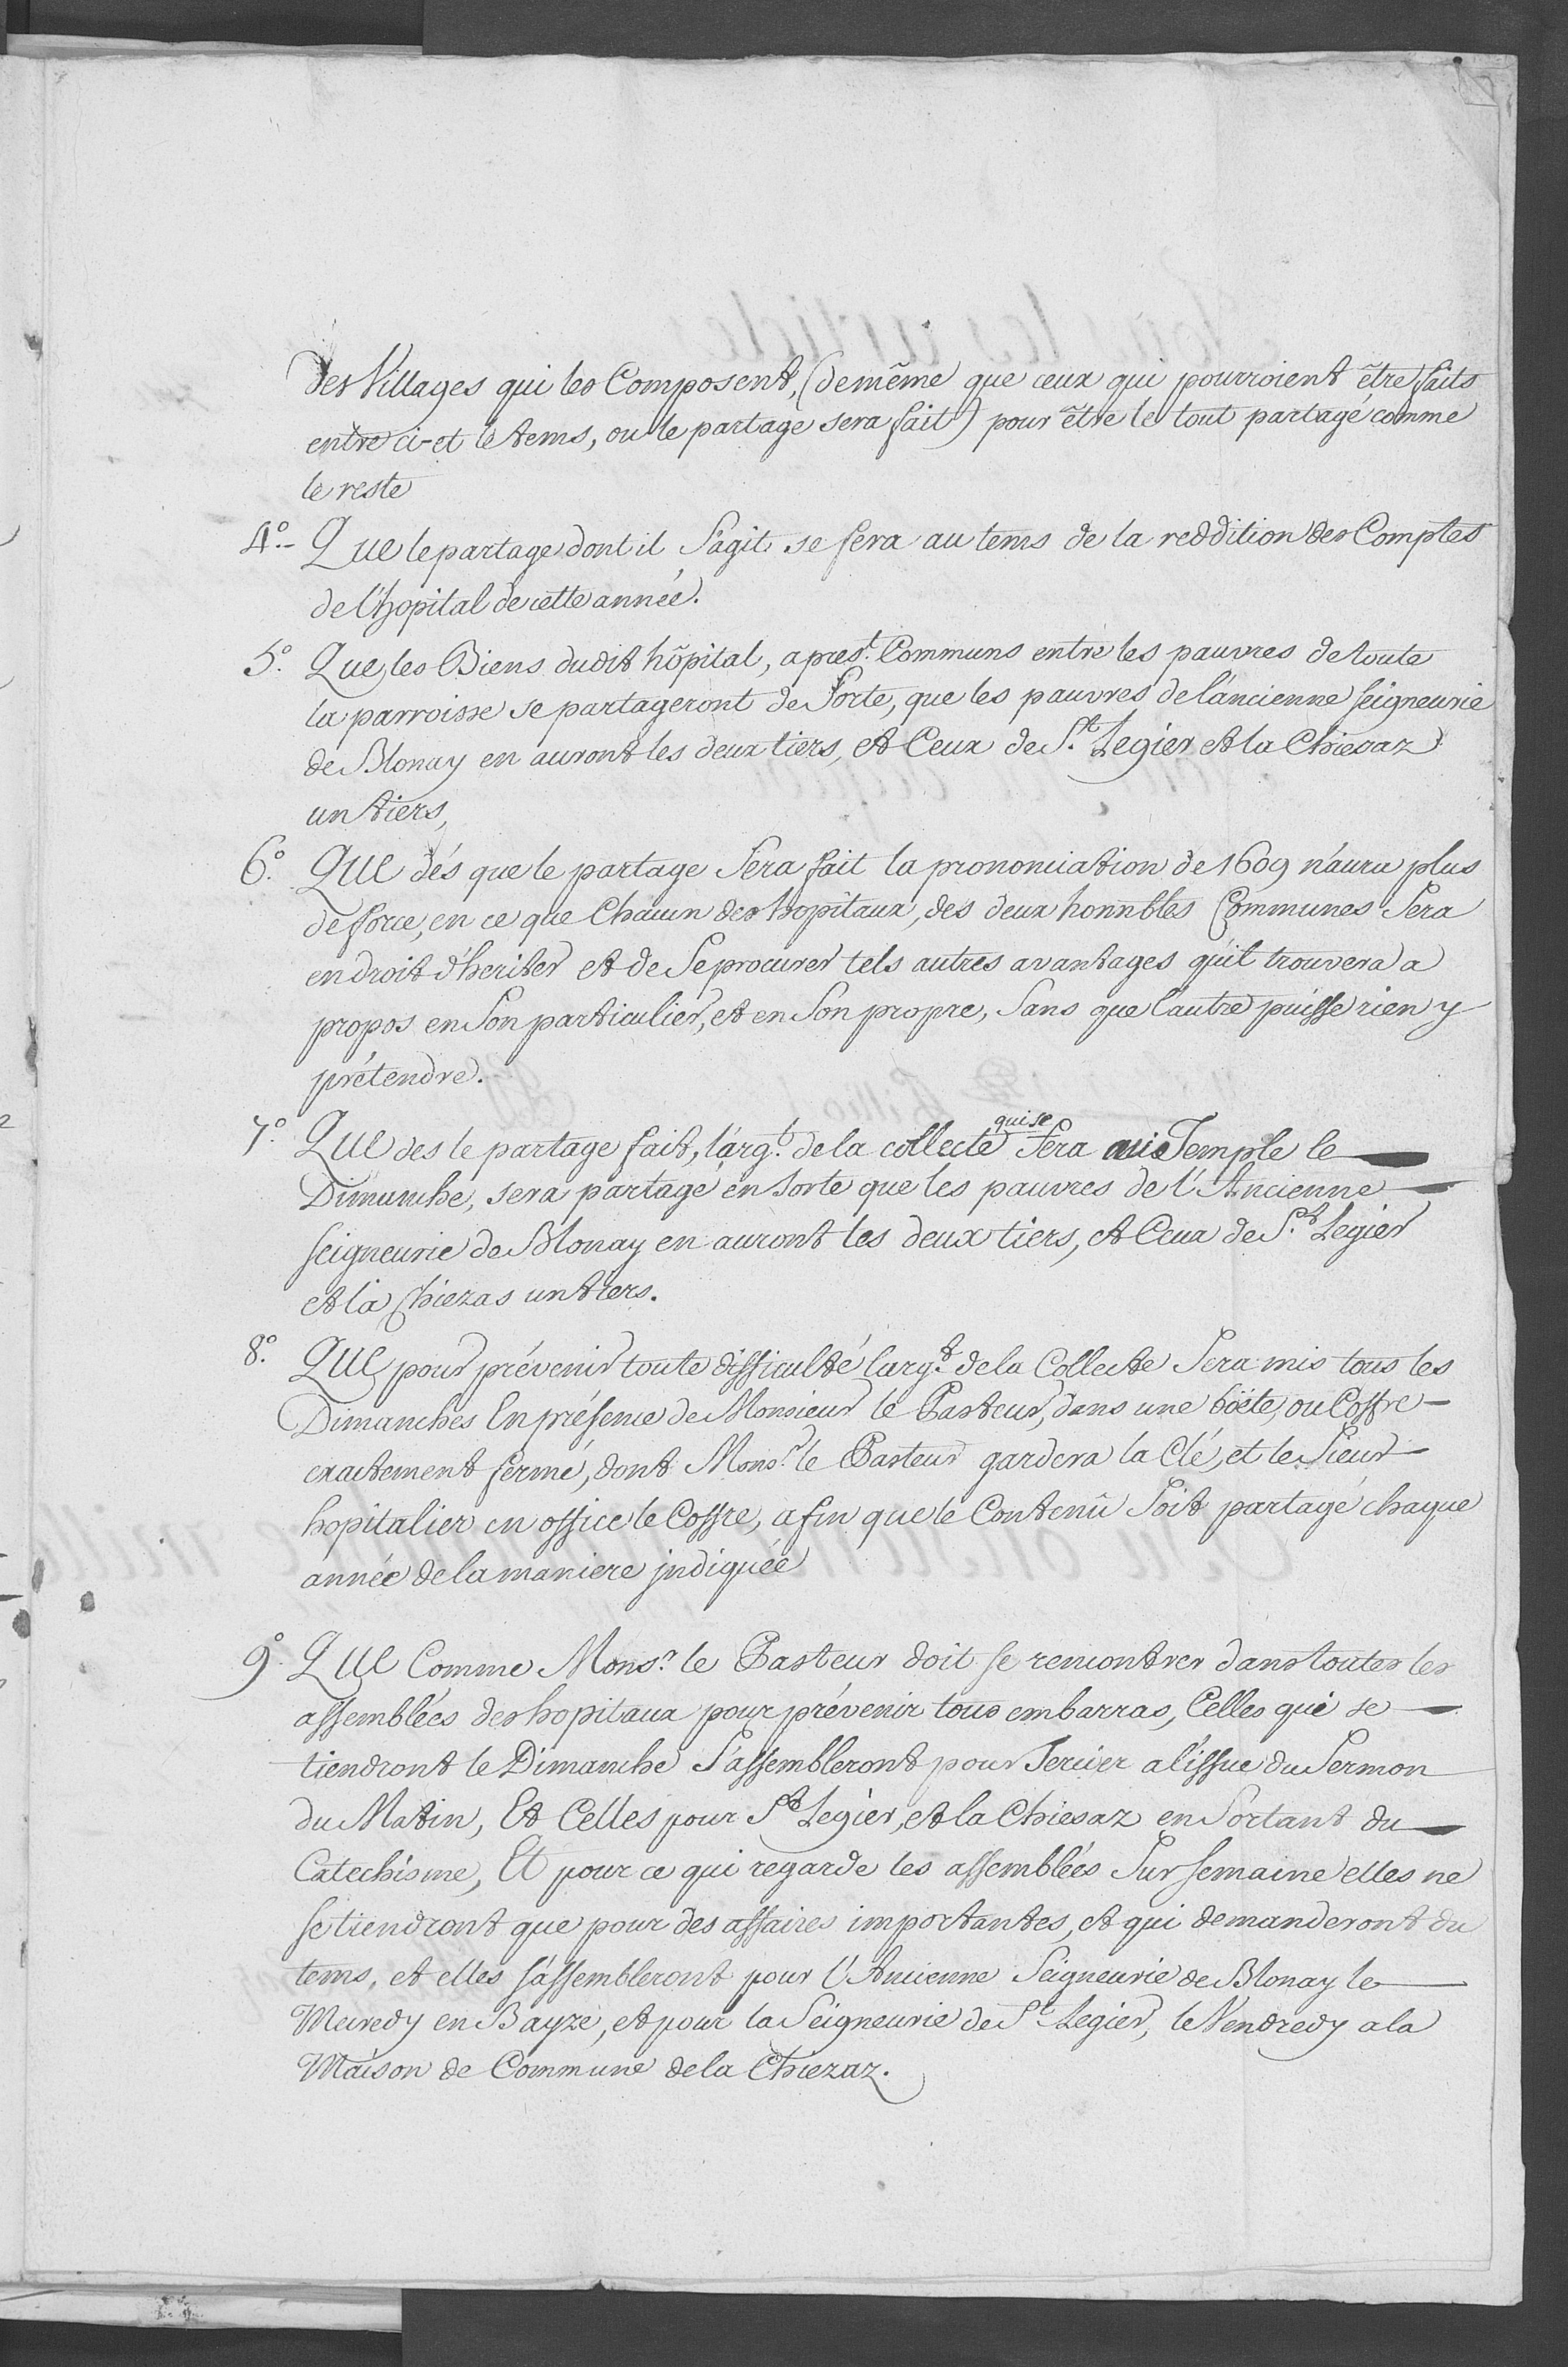 des Villages qui les Composent, (demême que ceux qui pourroient être faits
entre ci-et le tems, ou le partage sera fait) pour être le tout partagé comme
le reste
4.° Que le partage dont il s'agit se fera au tems de la reddition des Comptes
de l'hopital de cette année.
5.° Que les Biens dudit hôpital, apres.t Communs entre les pauvres de toute
la parroisse se partageront de Sorte, que les pauvres de l'ancienne seigneurie
de Blonay en auront les deux tiers, et Ceux de S.t Legier et la Chiesaz
un tiers,
6.° Que dés que le partage Sera fait la prononciation de 1609 n'aura plus
de force, en ce que Chacun des hopitaux, des deux honnbles Communes Sera
en droit d'heriter et de Se procurer tels autres avantages qu'il trouvera a
propos en Son particulier, et en Son propre, Sans que l'autre puisse rien y
prétendre.
7.° Que des le partage fait, l'arg.t de la collecte qui se fera au Temple le
Dimanche, sera partagé en sorte que les pauvres de l'Ancienne
seigneurie de Blonay en auront les deux tiers, et Ceux de S.t Legier
et la Chiezas un tiers.
8.° Que pour prévenir toute difficulté l'arg.t de la Collecte Sera mis tous les
Dimanches En présence de Monsieur le Pasteur, dans une boëte, ou Coffre
exactement fermé, dont Mons.r le Pasteur gardera la Clé, et le Sieur
hopitalier en office le Coffre, afin que le Contenû Soit partagé chaque
année de la maniere indiquée
9.° Que Comme Mons.r le Pasteur doit se rencontrer dans toutes les
assemblées des hopitaux pour prévenir tous embarras, Celles qui se
tiendront le Dimanche S'assembleront pour a l'issue du Sermon
du Matin, Et Celles pour St Legier, et la Chiesaz en Sortant du
Catechisme, Et pour ce qui regarde les assemblées Sur semaine elles ne
se tiendront que pour des affaires importantes, et qui demanderont du
tems, et elles s'assembleront pour l'Ancienne Seigneurie de Blonay le
Mecredy en Bayze, et pour la Seigneurie de St Legier, le Vendredy a la
Maison de Commune de la Chiezaz.